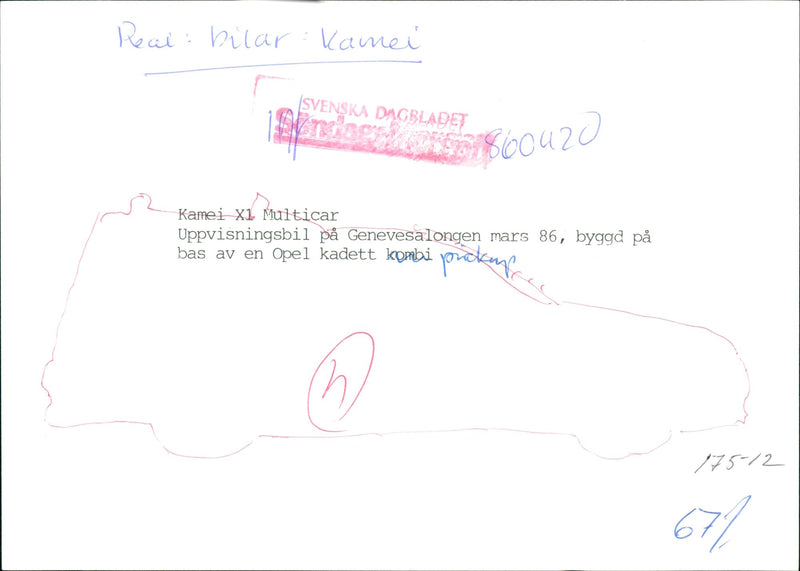 Real: bilar: Kamei
SVENSKA DAGBLADET
860420
Kamei X1 Multicar
Uppvisningsbil på Genevesalongen mars 86, byggd på
bas av en Opel kadett kombi pickup
175-12
67/